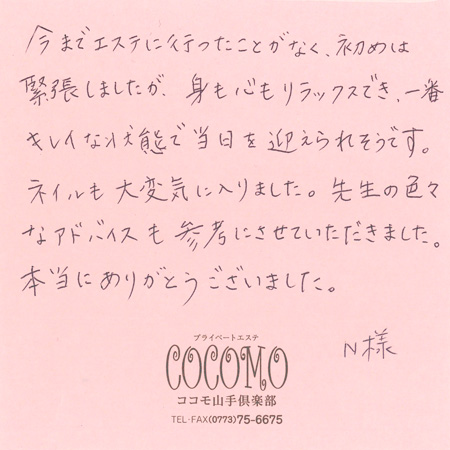 今までエステに行ったことがなく、初めは
緊張しましたが、身も心もリラックスでき、一番
キレイな状態で当日を迎えられそうです。
ネイルも大変気に入りました。先生の色々
なアドバイスも参考にさせていただきました。
本当にありがとうございました。
N様
プライベートエステ
COCOMO
ココモ山手倶楽部
TEL・FAX(0773)75-6675